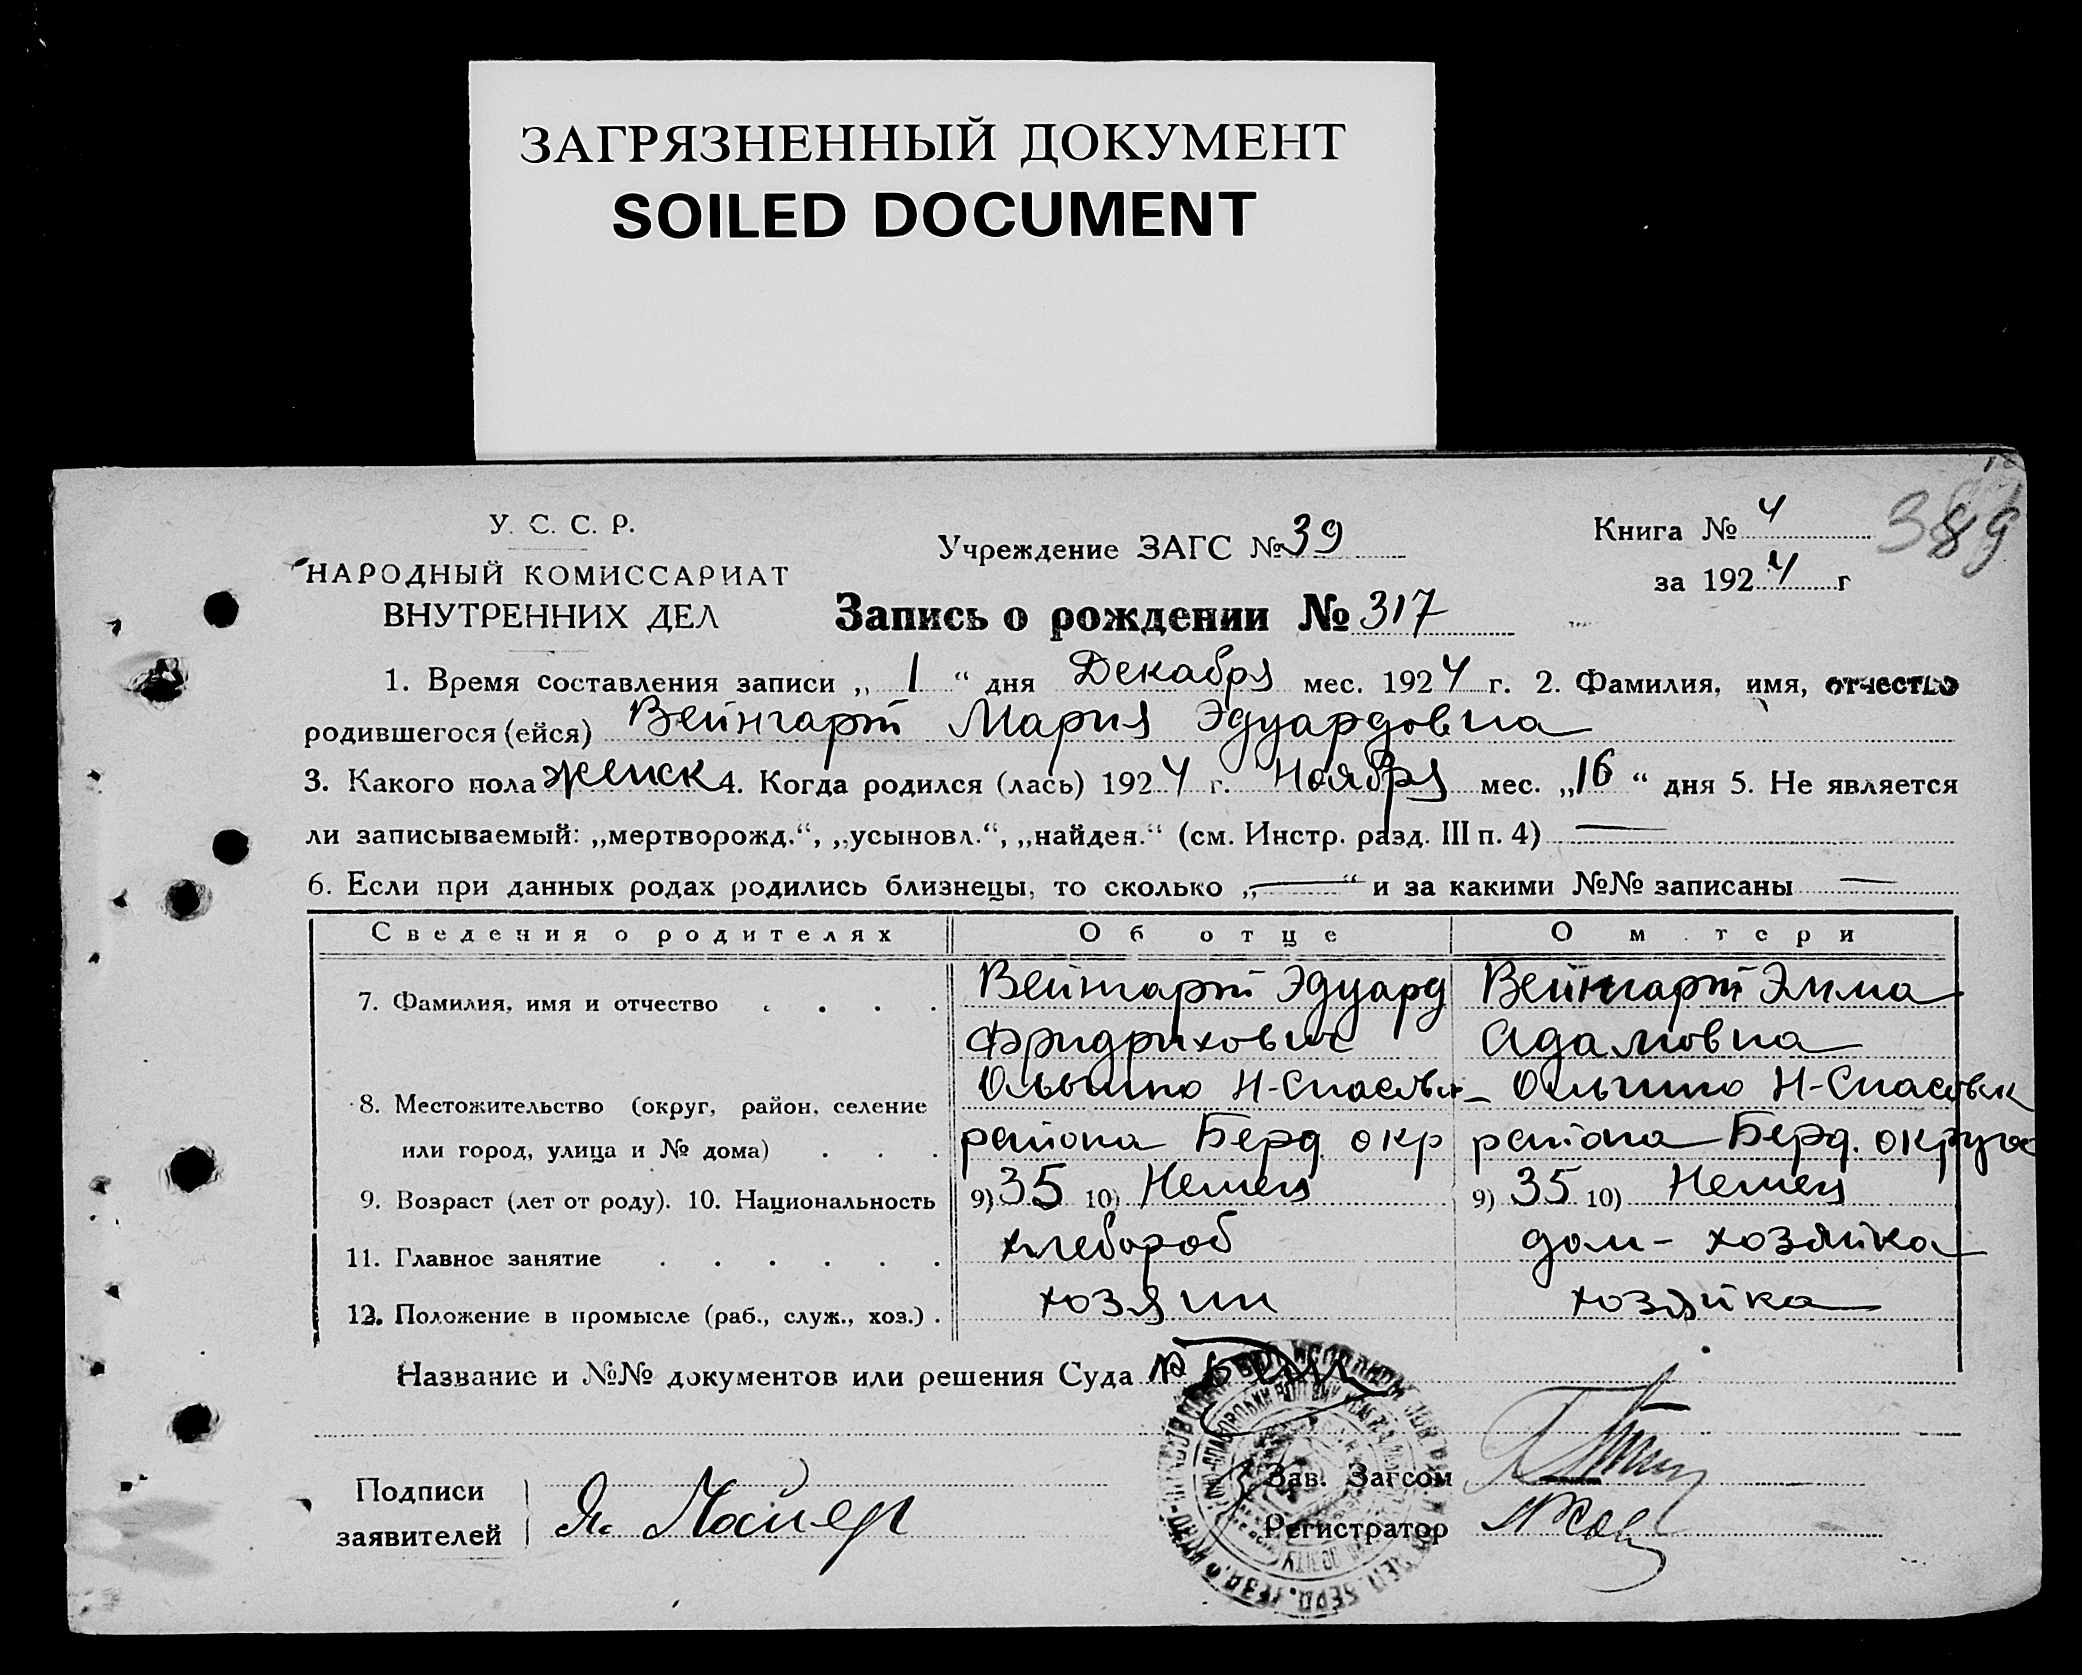 ЗАГРЯЗНЕННЫЙ ДОКУМЕНТ
SOILED DOCUMENT
389
У. С. С. Р.
НАРОДНЫЙ КОМИССАРИАТ
ВНУТРЕННИХ ДЕЛ
Учреждение ЗАГС № 39
Книга № 4
за 1924 г
Запись о рождении № 317
1. Время составления записи „ 1 “ дня Декабря мес. 1924 г. 2. Фамилия, имя, отчество
родившегося (ейся) Вейнгарт Мария Эдуардовна
3. Какого пола женск 4. Когда родился (лась) 1924 г. Ноября мес. „16“ дня 5. Не является
ли записываемый: „мертворожд.“, „усыновл.“, „найден.“ (см. Инстр. разд. III п. 4) —
6. Если при данных родах родились близнецы, то сколько „—“ и за какими №№ записаны —
Сведения о родителях Об отце О м тери
7. Фамилия, имя и отчество . . . . Вейнгарт Эдуард Вейнгарт Эмма
Фридрихович Адамовна
8. Местожительство (округ, район, селение Ольгино Н-Спасовк Ольгино Н-Спасовк
или город, улица и № дома) . . . района Берд. окр района Берд. округа
9. Возраст (лет от роду). 10. Национальность 9) 35 10) Немец 9) 35 10) Немец
11. Главное занятие . . . . . . хлебороб дом-хозяйка
12. Положение в промысле (раб., служ., хоз.) . хозяин хозяйка
Название и №№ документов или решения Суда
Подписи
заявителей
Я. Майер
Зав. Загсом
Регистратор